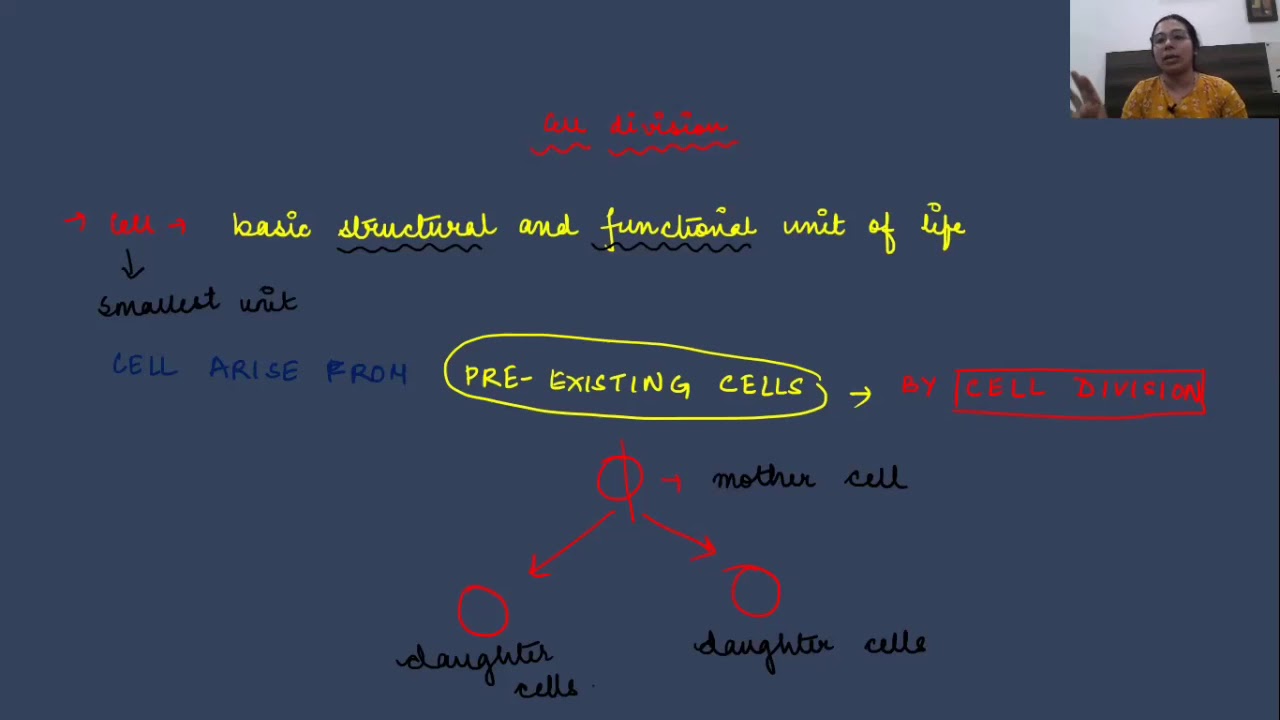 Cell division
→ Cell → basic structural and functional unit of life
smallest unit
CELL ARISE FROM PRE-EXISTING CELLS → BY CELL DIVISION
→ mother cell
daughter cells
daughter cells